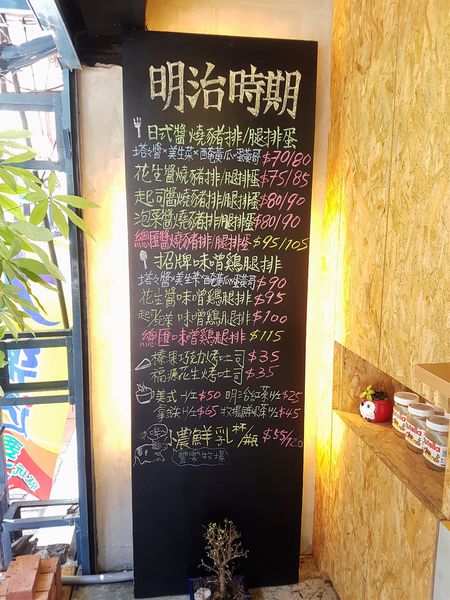 明治時期
日式醬燒豬排/腿排蛋
塔塔醬×美生菜×西奄黃瓜×蛋黃哥 $70/80
花生醬燒豬排/腿排蛋 $75/85
起司醬燒豬排/腿排蛋 $80/90
泡菜醬燒豬排/腿排蛋 $80/90
總匯醬燒豬排/腿排蛋 $95/105
招牌味噌鷄腿排
塔塔醬×美生菜×西奄黃瓜×蛋黃哥 $90
花生醬味噌鷄腿排 $95
味噌鷄腿排 $100
總匯味噌鷄腿排 $115
榛果巧克力烤吐司 $35
福源花生烤吐司 $35
美式 H/I $50 明治紅茶H/I $25
拿鐵 H/I $65 牧場鮮奶茶H/I $45
小農鮮乳 杯/瓶 $55/120
豐樂牧場